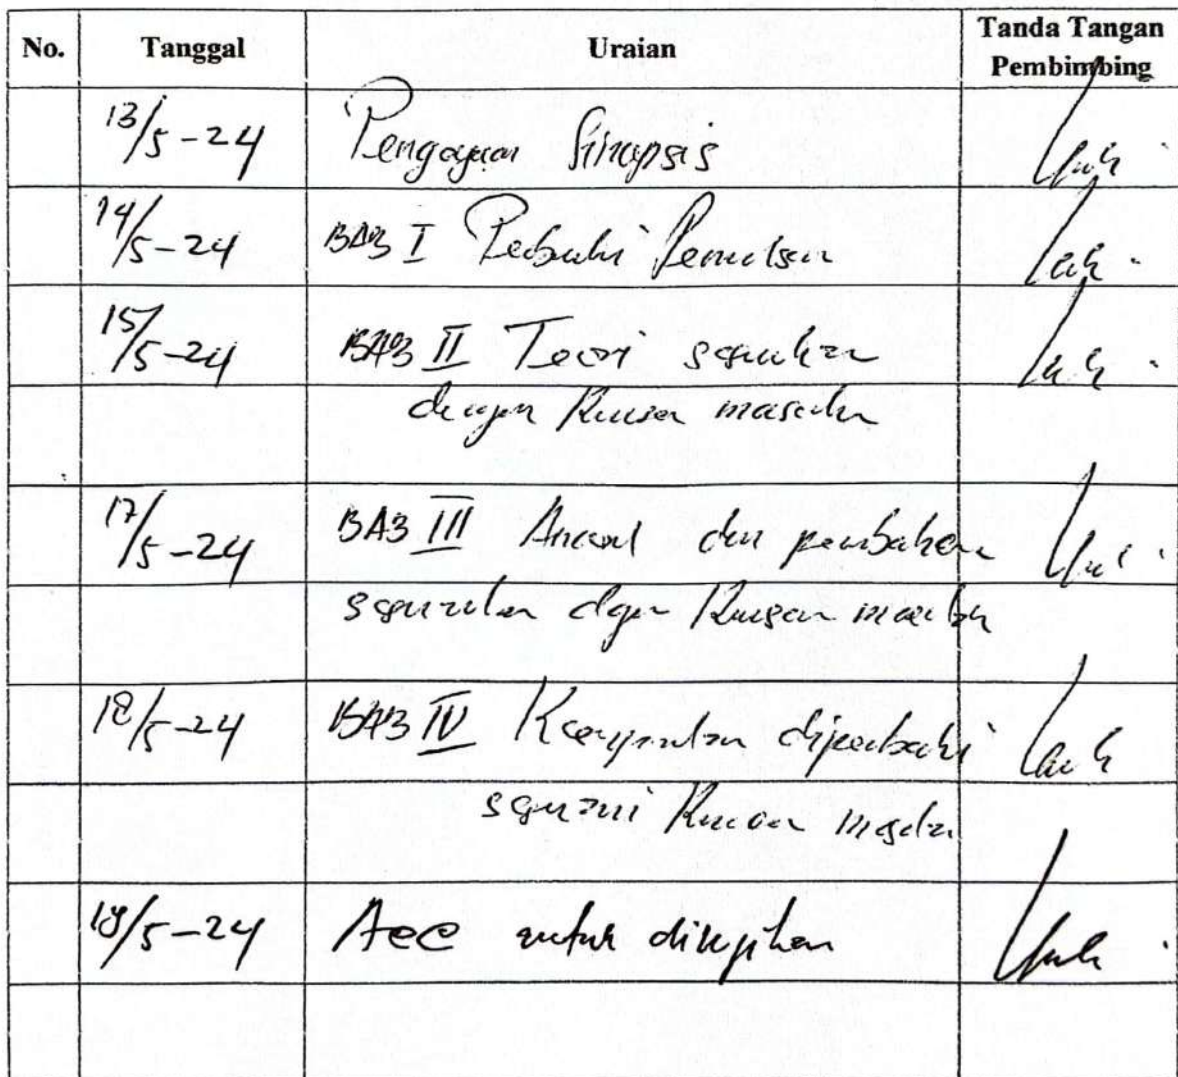 No. Tanggal Uraian Tanda Tangan Pembimbing
13/5-24 Pengajuan Sinopsis
14/5-24 BAB I Perbaiki Penulisan
15/5-24 BAB II Teori sesuaikan
dengan Rumusan masalah
17/5-24 BAB III dan pembahasan
sesuaikan dengan Rumusan masalah
18/5-24 BAB IV Kesimpulan diperbaiki
sesuai Rumusan masalah
/5-24 Acc untuk diujikan